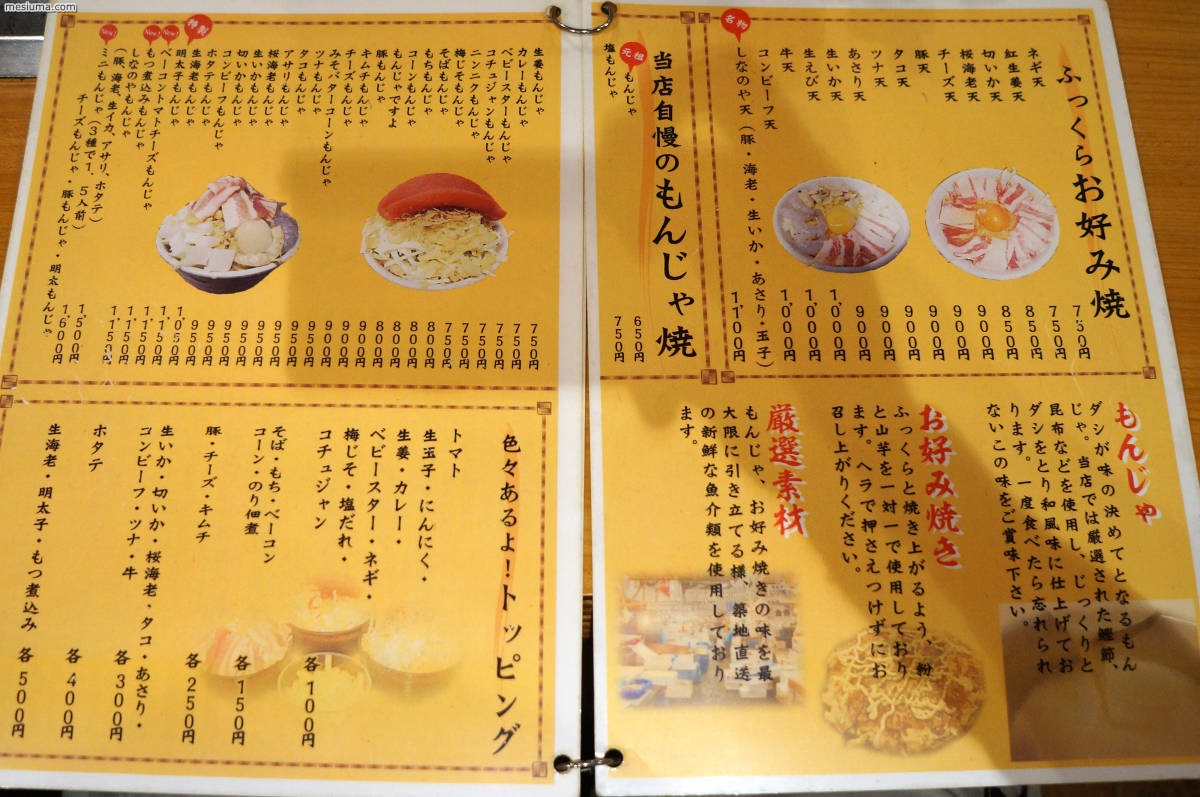 mesiuma.com
ふっくらお好み焼
ネギ天 750円
紅生姜天 750円
切いか天 850円
桜海老天 850円
チーズ天 900円
豚天 900円
タコ天 900円
ツナ天 900円
あさり天 900円
生いか天 900円
生えび天 1,000円
牛天 1,000円
コンビーフ天 1,000円
名物 しなのや天(豚・海老・生いか・あさり・玉子) 1,100円
当店自慢のもんじゃ焼
元祖 もんじゃ 650円
塩もんじゃ 750円
もんじゃ
ダシが味の決めてとなるもん
じゃ。当店では厳選された鰹節、
昆布などを使用し、じっくりと
ダシをとり和風味に仕上げてお
ります。一度食べたら忘れられ
ないこの味をご賞味下さい。
お好み焼き
ふっくらと焼き上がるよう、粉
と山芋を一対一で使用しており
ます。ヘラで押さえつけずにお
召し上がりください。
厳選素材
もんじゃ、お好み焼きの味を最
大限に引き立てる様、築地直送
の新鮮な魚介類を使用しており
ます。
生姜もんじゃ 750円
カレーもんじゃ 750円
ベビースターもんじゃ 750円
コチュジャンもんじゃ 750円
ニンニクもんじゃ 750円
梅じそもんじゃ 750円
そばもんじゃ 800円
もちもんじゃ 800円
コーンもんじゃ 800円
もんじゃですよ 800円
豚もんじゃ 900円
キムチもんじゃ 900円
チーズもんじゃ 900円
みそバターコーンもんじゃ 900円
ツナもんじゃ 900円
タコもんじゃ 950円
アサリもんじゃ 950円
桜海老もんじゃ 950円
生いかもんじゃ 950円
切いかもんじゃ 950円
コンビーフもんじゃ 950円
ホタテもんじゃ 1,050円
特製 生海老もんじゃ 1,150円
明太子もんじゃ 1,150円
New! ベーコントマトチーズもんじゃ 1,150円
New! もつ煮込みもんじゃ 1,150円
しなのやもんじゃ 1,500円
(豚、海老、生イカ、アサリ、ホタテ)
New! ミニもんじゃ(3種で1.5人前) 1,600円
チーズもんじゃ・豚もんじゃ・明太もんじゃ
色々あるよ!トッピング
トマト
生玉子・にんにく・
生姜・カレー・
ベビースター・ネギ・
梅じそ・塩だれ・
コチュジャン 各100円
そば・もち・ベーコン
コーン・のり佃煮 各150円
豚・チーズ・キムチ 各250円
生いか・切いか・桜海老・タコ・あさり・
コンビーフ・ツナ・牛 各300円
ホタテ 各400円
生海老・明太子・もつ煮込み 各500円